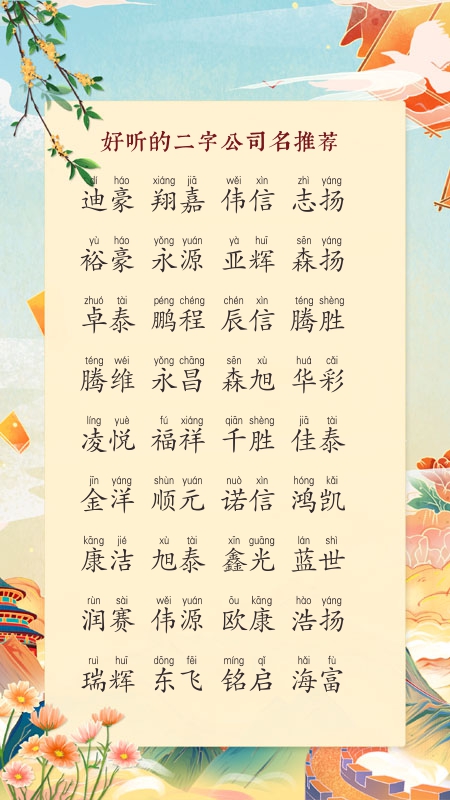 好听的二字公司名推荐
dí háo xiáng jiā wěi xìn zhì yáng
迪豪 翔嘉 伟信 志扬
yù háo yǒng yuán yà huī sēn yáng
裕豪 永源 亚辉 森扬
zhuó tài péng chéng chén xìn téng shèng
卓泰 鹏程 辰信 腾胜
téng wéi yǒng chāng sēn xù huá cǎi
腾维 永昌 森旭 华彩
líng yuè fú xiáng qiān shèng jiā tài
凌悦 福祥 千胜 佳泰
jīn yáng shùn yuán nuò xìn hóng kǎi
金洋 顺元 诺信 鸿凯
kāng jié xù tài xīn guāng lán shì
康洁 旭泰 鑫光 蓝世
rùn sài wěi yuán ōu kāng hào yáng
润赛 伟源 欧康 浩扬
ruì huī dōng fēi míng qǐ hǎi fù
瑞辉 东飞 铭启 海富